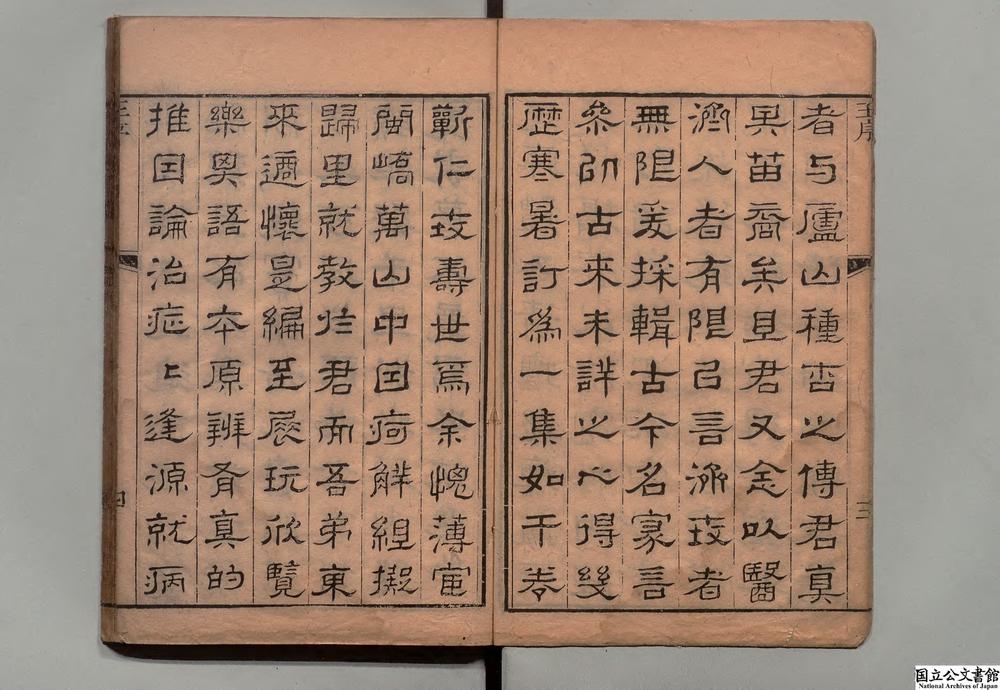 者与廬山種杏之傳君真
吴苗裔矣且君又念以醫
濟人者有限㠯言濟者
無限爰採輯古今名家言
叅以古来未詳之心得幾
歴寒暑訂爲一集如干卷
王序
三
蘄仁壽世焉余愧薄宦
閩嶠萬山中因疴解組擬
歸里就教扵君而吾弟東
来適懷是編至展玩欣覽
樂與語有本原辨有真的
推因論治症〻逢源就病
王序
四
国立公文書館
National Archives of Japan